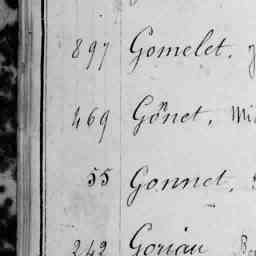 897 Gomelet,
469 Gonet,
55 Gonnet,
242 Goriau